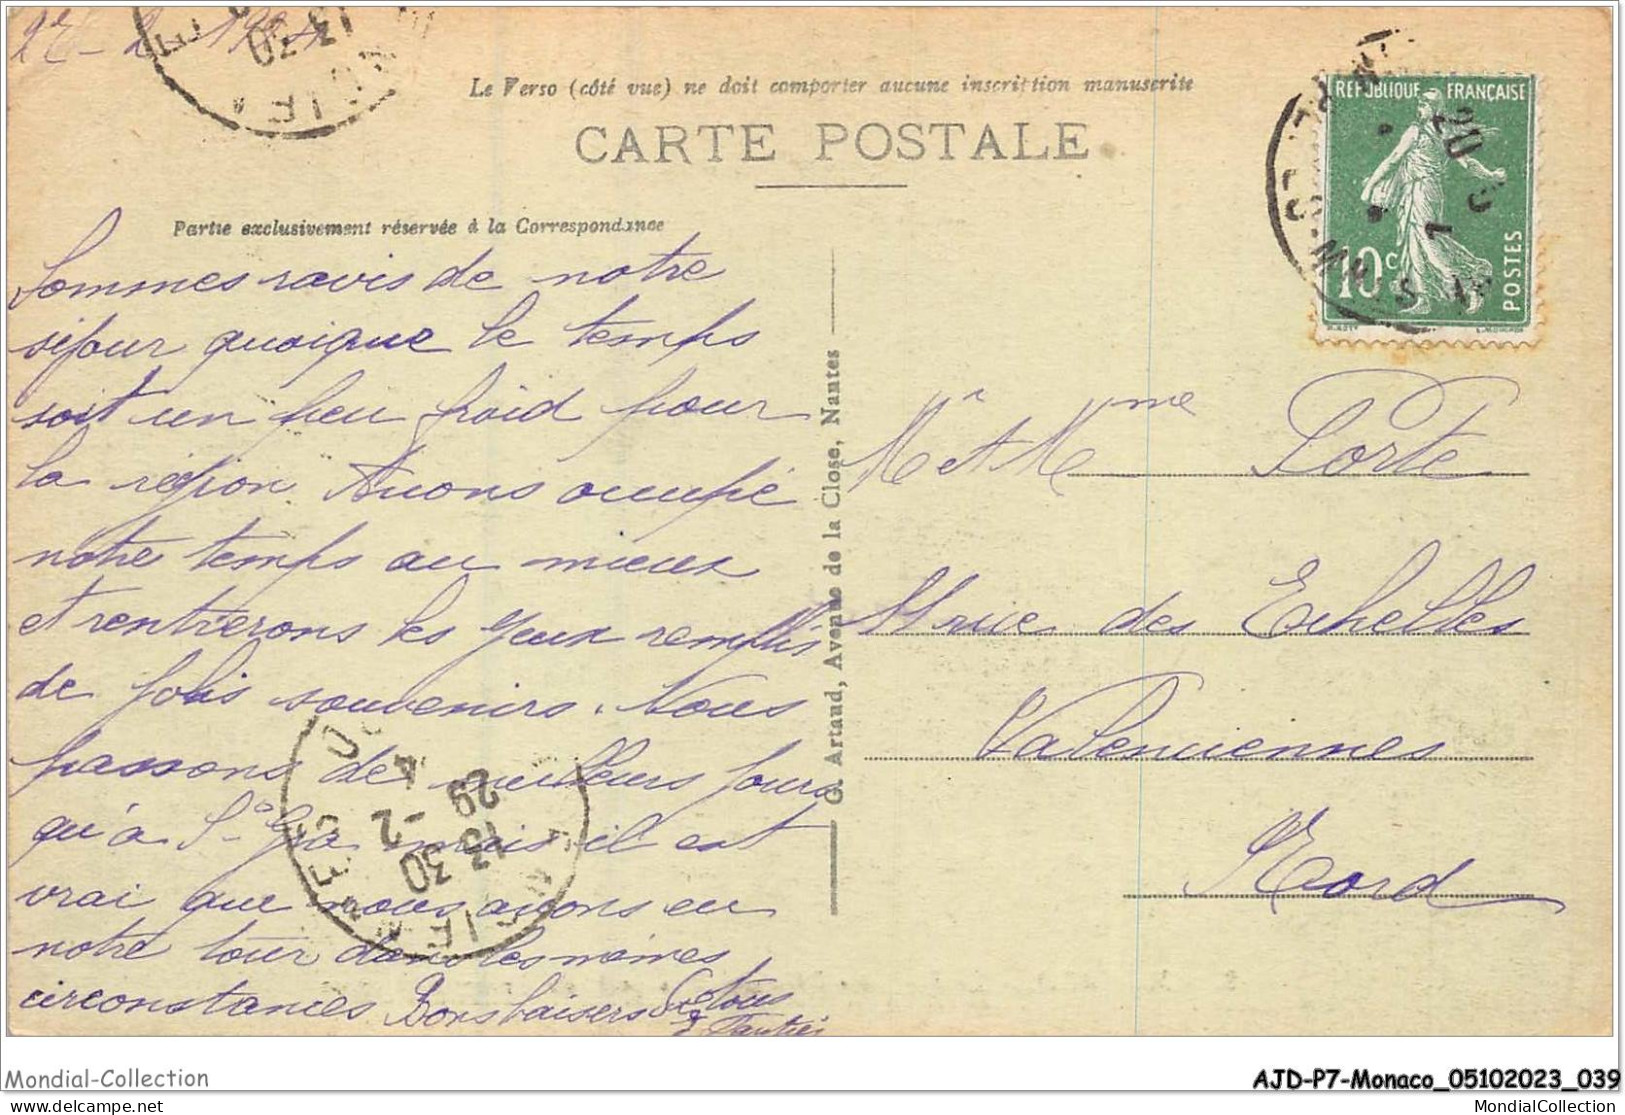 Le Verso (côté vue) ne doit comporter aucune inscription manuscrite
CARTE POSTALE
Partie exclusivement réservée à la Correspondance
Sommes ravis de notre
séjour quoique le temps
soit un peu froid pour
la région. Avons occupé
notre temps au mieux
et rentrerons les yeux remplis
de jolis souvenirs. Nous
passons de meilleurs jours
qu'à mais il est
vrai que nous avons eu
notre tour dans les mêmes
circonstances Bons baisers à tous
G. Artaud, Avenue de la Close, Nantes
REPUBLIQUE FRANÇAISE
10c
POSTES
13 30
13 30
-2
29
Mr et Mme Porte
rue des Echelles
Valenciennes
Nord
Mondial-Collection
AJD-P7-Monaco_05102023_039
www.delcampe.net
MondialCollection